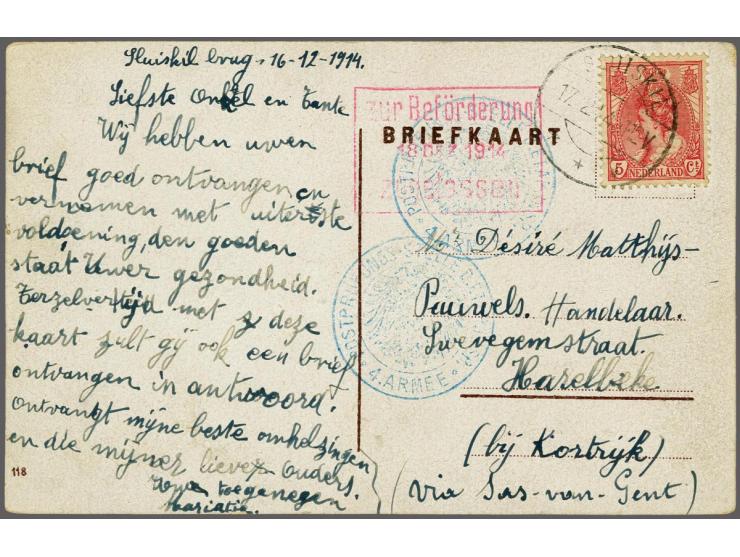 Sluiskil brug, 16-12-1914.
Liefste Onkel en Tante
Wij hebben uwen
brief goed ontvangen en
vernomen met uiterste
voldoening, den goeden
staat Uwer gezondheid.
Terzelvertijd met deze
kaart zult gij ook een brief
ontvangen in antwoord.
Ontvangt mijne beste omhelzingen
en die mijner liever ouders.
Uwe toegenegen
118
zur Beförderung
18 DEZ. 1914
zugelassen
BRIEFKAART
SLUISKIL
5 Ct
NEDERLAND
4. ARMEE
Désiré Matthijs-
Pauwels. Handelaar.
Swevegemstraat.
Harelbeke
(bij Kortrijk)
(via Sas-van-Gent)